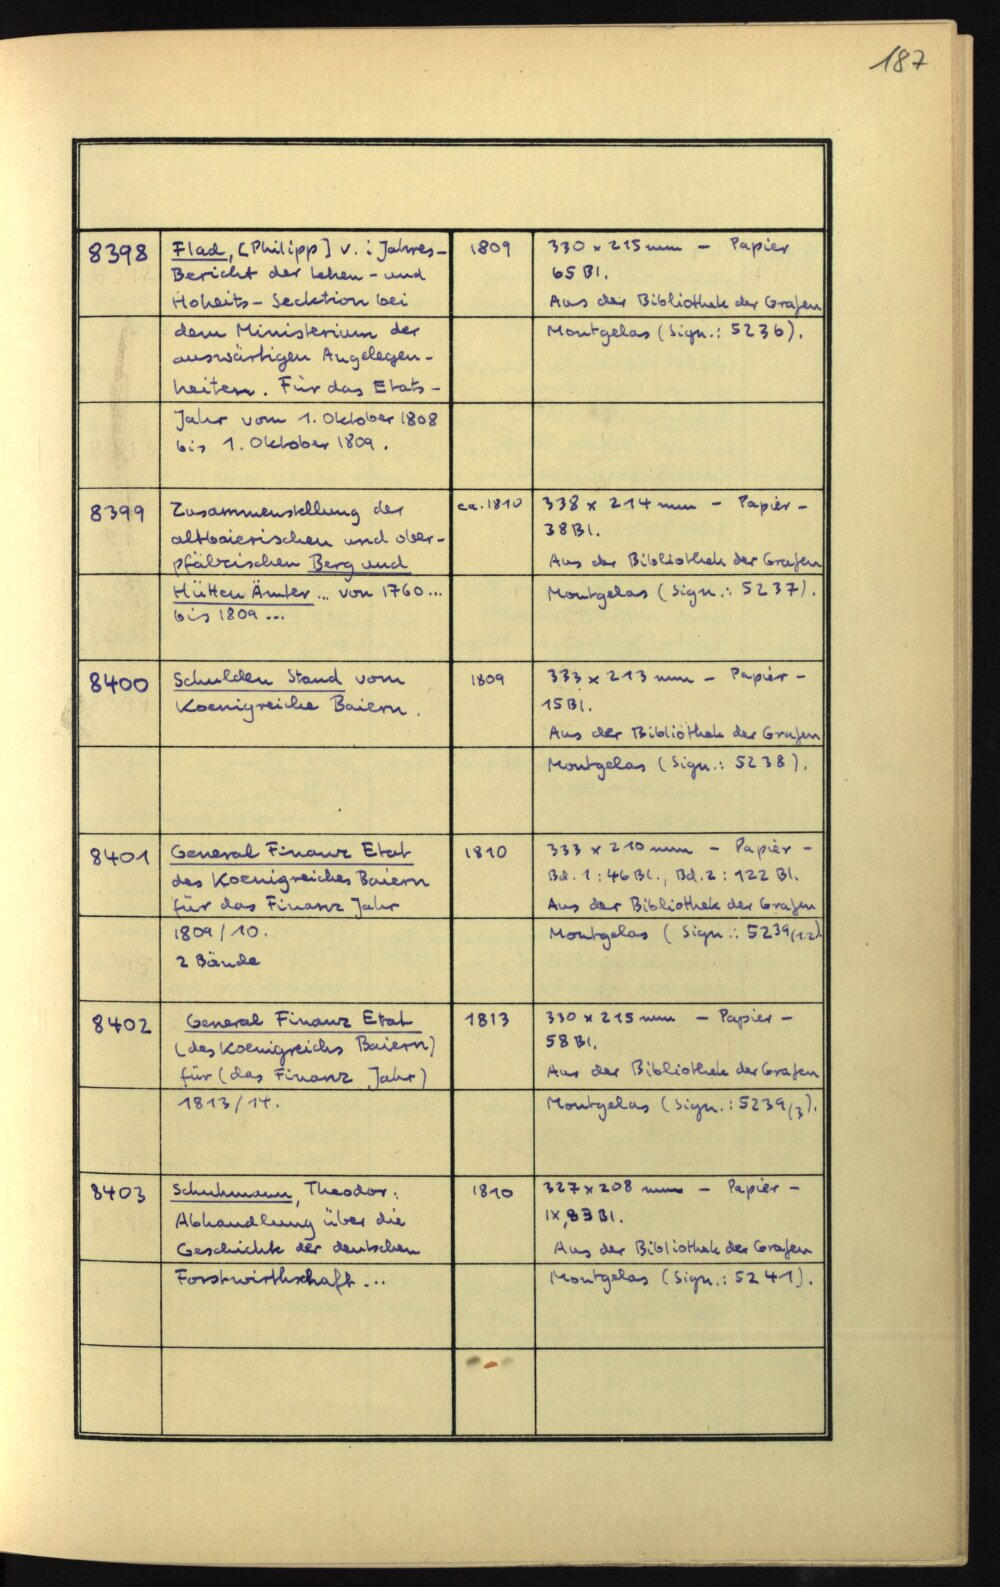 187
8398
Flad, [Philipp] v. : Jahres-
Bericht der Lehen- und
Hoheits-Secktion bei
dem Ministerium der
auswärtigen Angelegen-
heiten. Für das Etats-
Jahr vom 1. Oktober 1808
bis 1. Oktober 1809.
1809
330 x 215 mm - Papier
65 Bl.
Aus der Bibliothek der Grafen
Montgelas (Sign.: 5236).
8399
Zusammenstellung der
altbaierischen und ober-
pfälzischen Berg und
Hütten Ämter ... von 1760 ...
bis 1809 ...
ca. 1810
338 x 214 mm - Papier -
38 Bl.
Aus der Bibliothek der Grafen
Montgelas (Sign.: 5237).
8400
Schulden Stand vom
Koenigreiche Baiern.
1809
333 x 213 mm - Papier -
15 Bl.
Aus der Bibliothek der Grafen
Montgelas (Sign.: 5238).
8401
General Finanz Etat
des Koenigreiches Baiern
für das Finanz Jahr
1809/10.
2 Bände
1810
333 x 210 mm - Papier -
Bd. 1: 46 Bl., Bd. 2: 122 Bl.
Aus der Bibliothek der Grafen
Montgelas (Sign.: 5239/1.2).
8402
General Finanz Etat
(des Koenigreichs Baiern)
für (das Finanz Jahr)
1813/14.
1813
330 x 215 mm - Papier -
58 Bl.
Aus der Bibliothek der Grafen
Montgelas (Sign.: 5239/3).
8403
Schuhmann, Theodor:
Abhandlung über die
Geschichte der deutschen
Forstwirthschaft ...
1810
327 x 208 mm - Papier -
IX, 83 Bl.
Aus der Bibliothek der Grafen
Montgelas (Sign.: 5241).